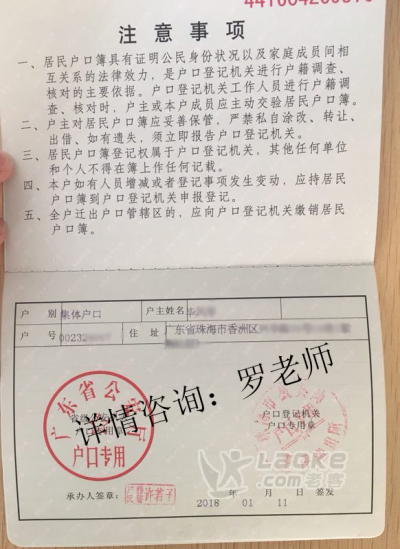 注意事项
一、居民户口簿具有证明公民身份状况以及家庭成员间相
互关系的法律效力，是户口登记机关进行户籍调查、
核对的主要依据。户口登记机关工作人员进行户籍调
查、核对时，户主或本户成员应主动交验居民户口簿。
二、户主对居民户口簿应妥善保管，严禁私自涂改、转让、
出借、如有遗失，须立即报告户口登记机关。
三、居民户口簿登记权属于户口登记机关，其他任何单位
和个人不得在簿上作任何记载。
四、本户如有人员增减或者登记事项发生变动，应持居民
户口簿到户口登记机关申报登记。
五、全户迁出户口管辖区的，应向户口登记机关缴销居民
户口簿。
户别 集体户口 户主姓名
户号 00232 住址 广东省珠海市香洲区
详情咨询：罗老师
广东省公安厅
户口专用
户口登记机关
户口专用章
承办人签章：
2018 年 01 月 11 日 签发
Laoke
.com 老客